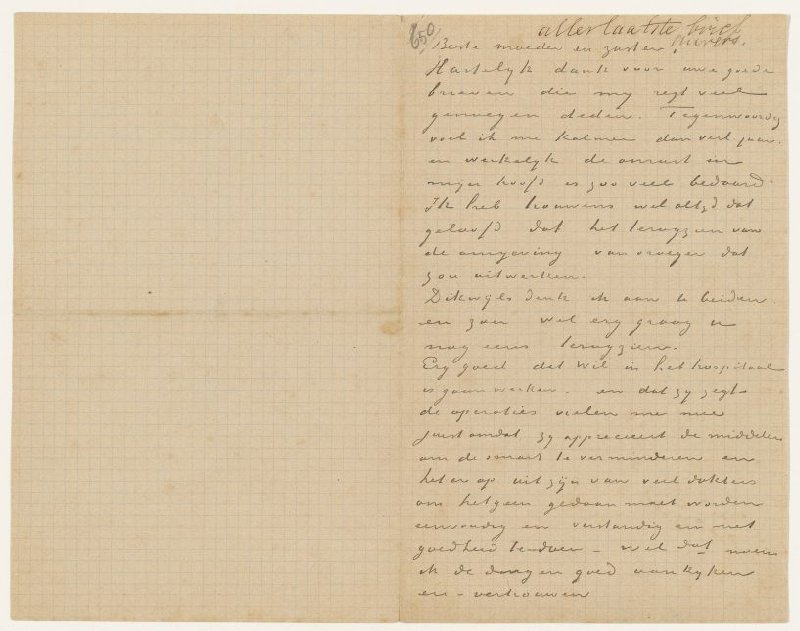 650
allerlaatste brief
Auvers.
Beste moeder en zuster,
Hartelyk dank voor uwe goede
brieven die my regt veel
genoegen deden. Tegenwoordig
voel ik me kalmer dan verl. jaar.
en werkelyk de onrust in
myn hoofd is zoo veel bedaard.
Ik heb trouwens wel altyd dat
geloofd dat het terugzien van
de omgeving van vroeger dat
zou uitwerken.
Dikwyls denk ik aan U beiden
en zou wel erg graag U
nog eens terugzien.
Erg goed dat Wil in het hospitaal
is gaan werken. en dat zy zegt
de operaties vielen me mee
juist omdat zy apprecieert de middelen
om de smart te verminderen en
het er op uit zyn van veel dokters
om hetgeen gedaan moet worden
eenvoudig en verstandig en met
goedheid te doen – wel dat noem
ik de dingen goed aankyken
en – vertrouwen